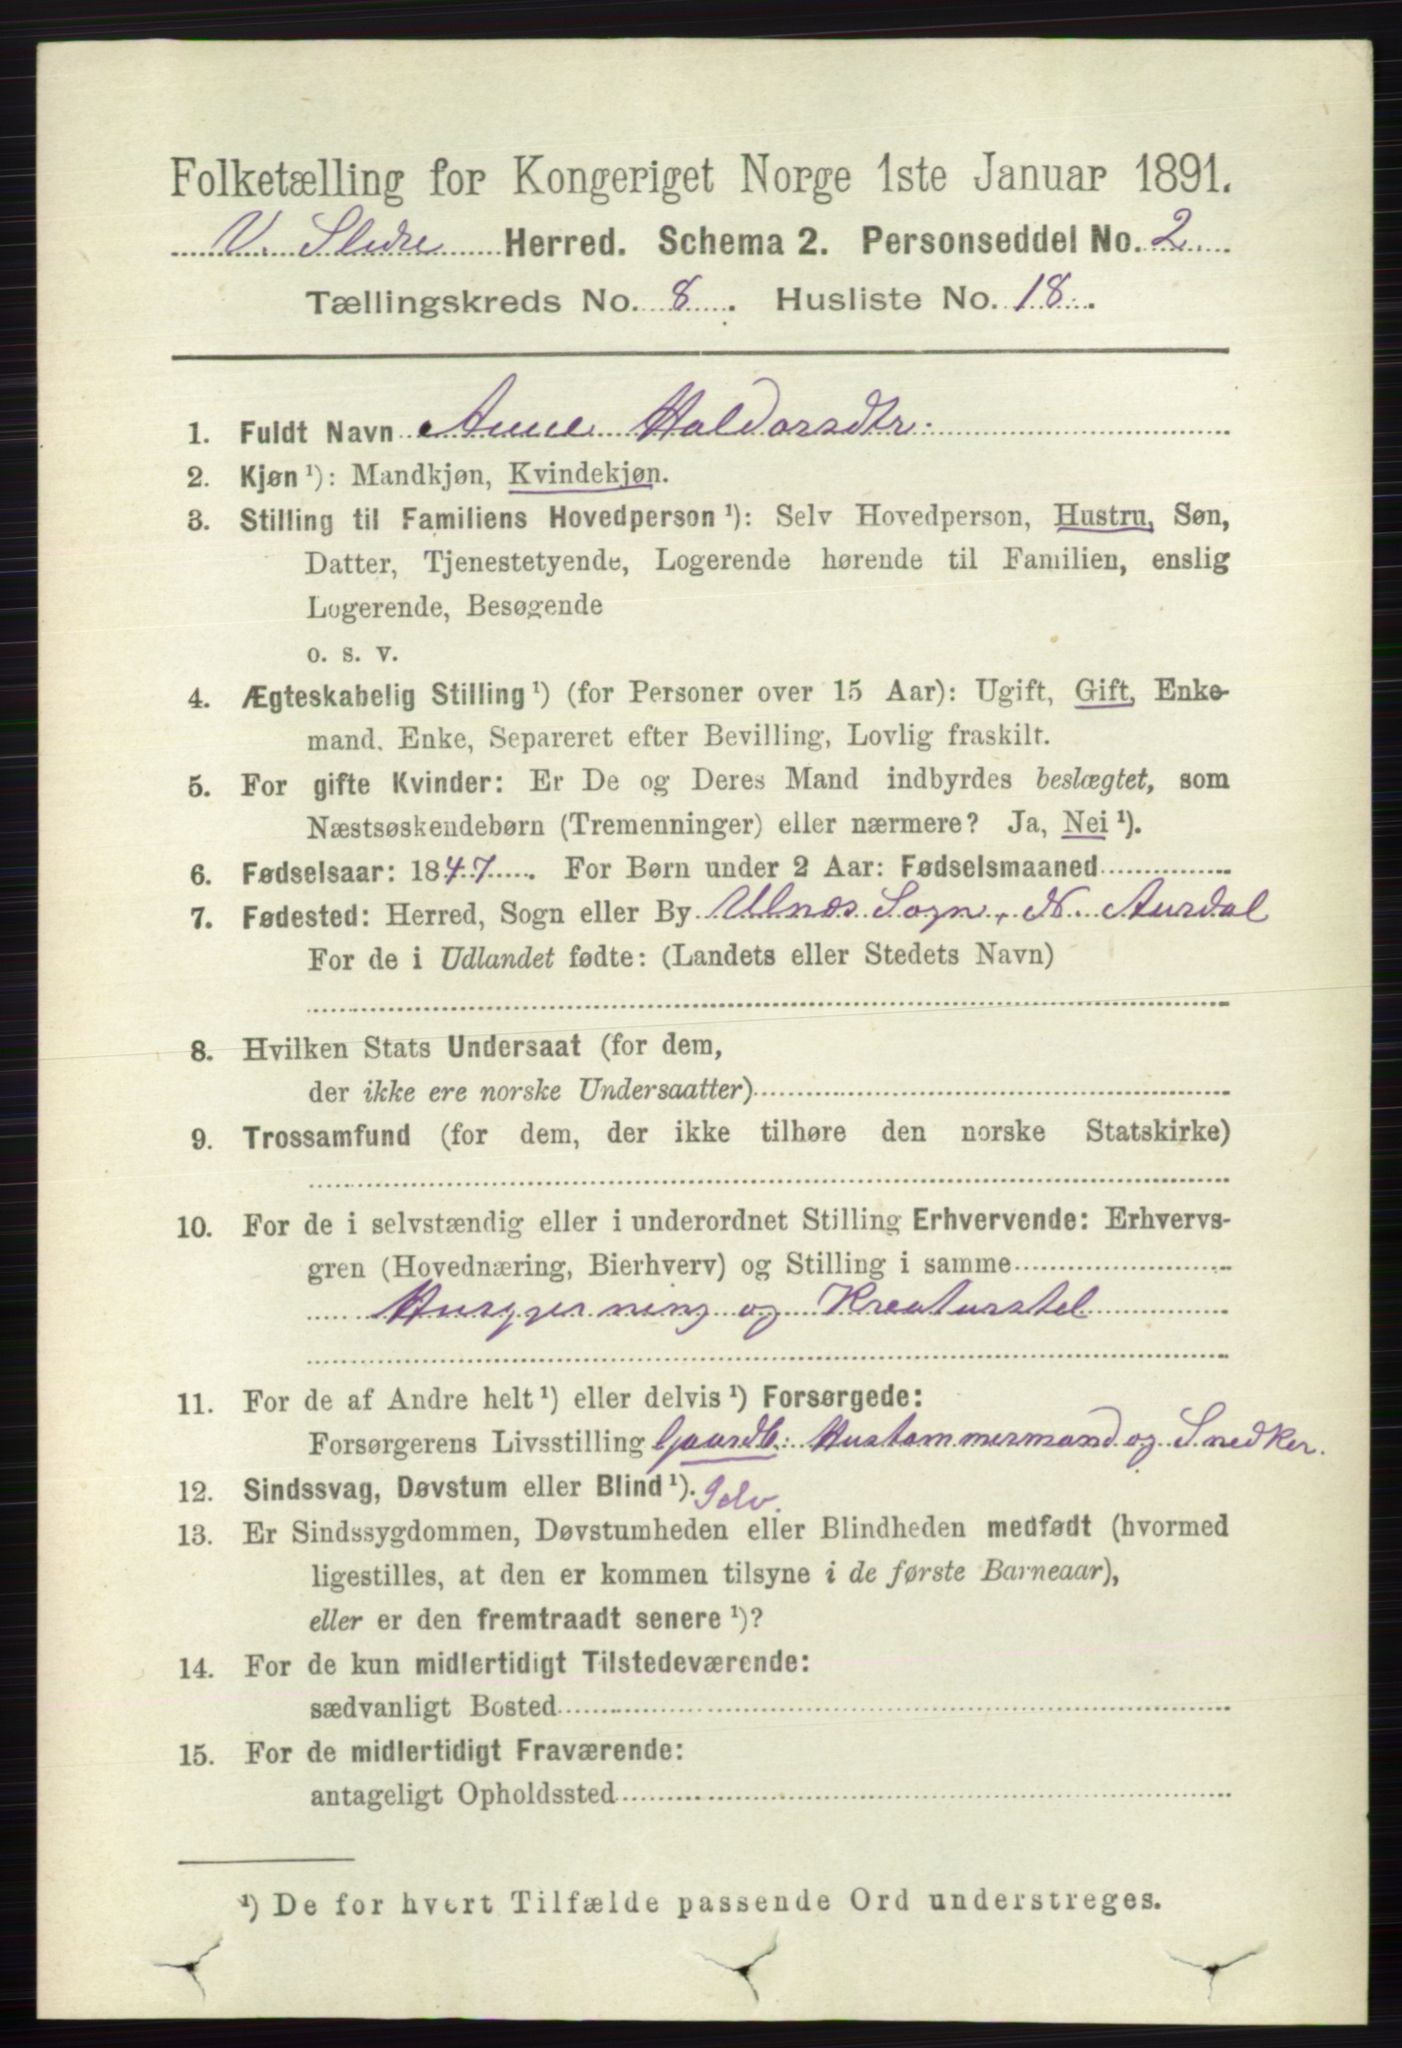 Folketælling for Kongeriget Norge 1ste Januar 1891.
V. Slidre Herred. Schema 2. Personseddel No. 2
Tællingskreds No. 8. Husliste No. 18.
1. Fuldt Navn Anne Haldorsdtr.
2. Kjøn ¹): Mandkjøn, Kvindekjøn.
3. Stilling til Familiens Hovedperson ¹): Selv Hovedperson, Hustru, Søn,
Datter, Tjenestetyende, Logerende hørende til Familien, enslig
Logerende, Besøgende
o. s. v.
4. Ægteskabelig Stilling ¹) (for Personer over 15 Aar): Ugift, Gift, Enke-
mand, Enke, Separeret efter Bevilling, Lovlig fraskilt.
5. For gifte Kvinder: Er De og Deres Mand indbyrdes beslægtet, som
Næstsøskendebørn (Tremenninger) eller nærmere? Ja, Nei ¹).
6. Fødselsaar: 1847. For Børn under 2 Aar: Fødselsmaaned
7. Fødested: Herred, Sogn eller By Ulnes Sogn, N. Aurdal
For de i Udlandet fødte: (Landets eller Stedets Navn)
8. Hvilken Stats Undersaat (for dem,
der ikke ere norske Undersaatter)
9. Trossamfund (for dem, der ikke tilhøre den norske Statskirke)
10. For de i selvstændig eller i underordnet Stilling Erhvervende: Erhvervs-
gren (Hovednæring, Bierhverv) og Stilling i samme
Husgjerning og Kreaturstel
11. For de af Andre helt ¹) eller delvis ¹) Forsørgede:
Forsørgerens Livsstilling Gaardb. Hustømmermand og Snedker.
12. Sindssvag, Døvstum eller Blind ¹).
13. Er Sindssygdommen, Døvstumheden eller Blindheden medfødt (hvormed
ligestilles, at den er kommen tilsyne i de første Barneaar),
eller er den fremtraadt senere ¹)?
14. For de kun midlertidigt Tilstedeværende:
sædvanligt Bosted
15. For de midlertidigt Fraværende:
antageligt Opholdssted
¹) De for hvert Tilfælde passende Ord understreges.